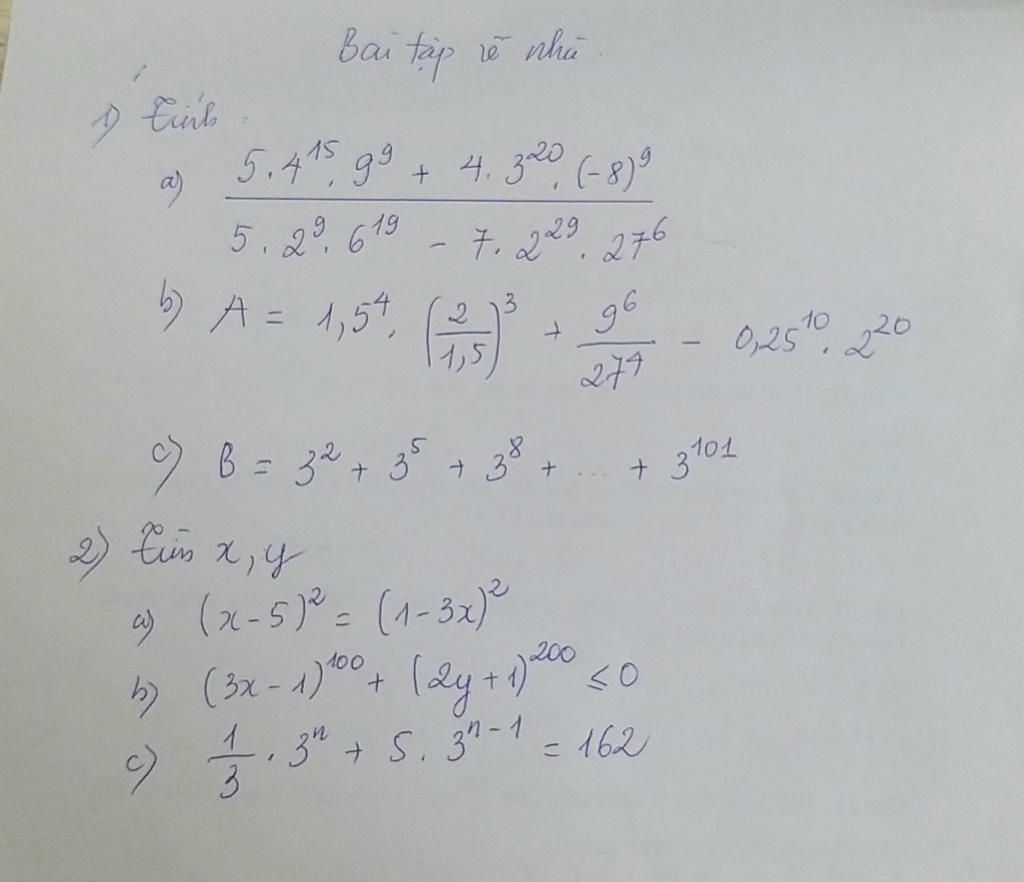 Bài tập về nhà.
1) Tính:
a) \frac{5.4^{15}.9^9 + 4.3^{20}.(-8)^9}{5.2^9.6^{19} - 7.2^{29}.27^6}
b) A = 1,5^4.(\frac{2}{1,5})^3 + \frac{9^6}{27^4} - 0,25^{10}.2^{20}
c) B = 3^2 + 3^5 + 3^8 + ... + 3^{101}
2) Tìm x, y
a) (x-5)^2 = (1-3x)^2
b) (3x-1)^{100} + (2y+1)^{200} ≤ 0
c) \frac{1}{3}.3^n + 5.3^{n-1} = 162